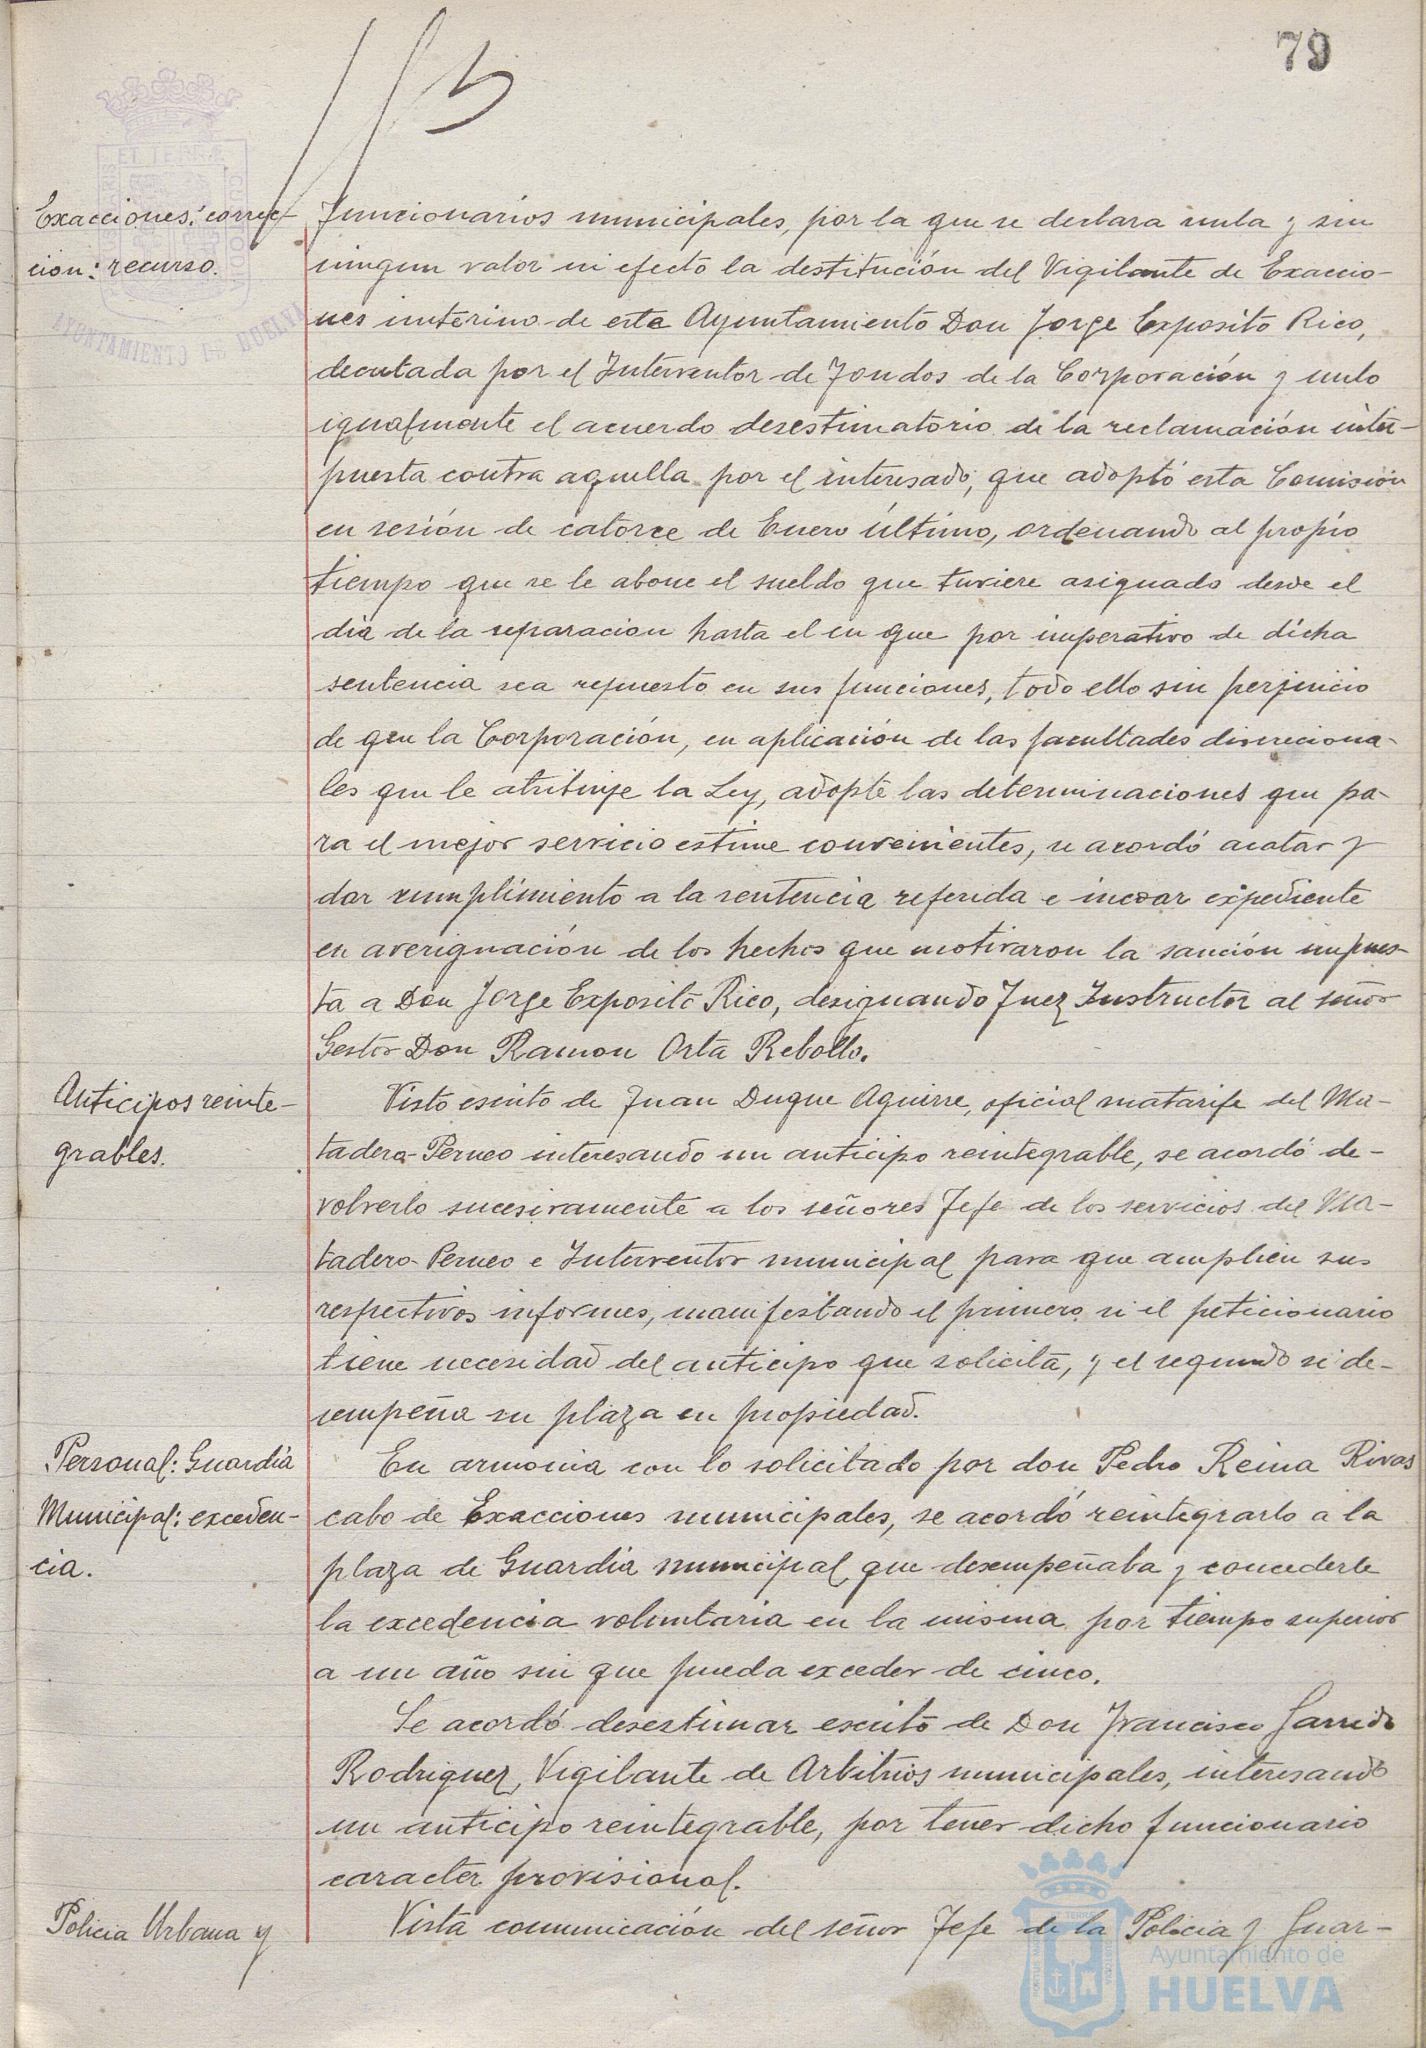 79
Exacciones: correc-
cion: recurso.
funcionarios municipales, por la que se declara nula y sin
ningun valor ni efecto la destitución del Vigilante de Exaccio-
nes interino de este Ayuntamiento Don Jorge Exposito Rico,
decretada por el Interventor de Fondos de la Corporación y nulo
igualmente el acuerdo desestimatorio de la reclamación inter-
puesta contra aquella por el interesado, que adoptó esta Comisión
en sesión de catorce de Enero último, ordenando al propio
tiempo que se le abone el sueldo que tuviere asignado desde el
dia de la separacion hasta el en que por imperativo de dicha
sentencia sea repuesto en sus funciones, todo ello sin perjuicio
de que la Corporación, en aplicación de las facultades discreciona-
les que le atribuye la Ley, adopte las determinaciones que pa-
ra el mejor servicio estime convenientes, se acordó acatar y
dar cumplimiento a la sentencia referida e incoar expediente
en averiguación de los hechos que motivaron la sanción impues-
ta a Don Jorge Exposito Rico, designando Juez Instructor al señor
Gestor Don Ramon Orta Rebollo.
Anticipos reinte-
grables.
Visto escrito de Juan Duque Aguirre, oficial matarife del Ma-
tadero-Perneo interesando un anticipo reintegrable, se acordó de-
volverlo sucesivamente a los señores Jefe de los servicios del Ma-
tadero-Perneo e Interventor municipal para que amplien sus
respectivos informes, manifestando el primero si el peticionario
tiene necesidad del anticipo que solicita, y el segundo si de-
sempeña su plaza en propiedad.
Personal: Guardia
Municipal: exceden-
cia.
En armonia con lo solicitado por don Pedro Reina Rivas
cabo de Exacciones municipales, se acordó reintegrarlo a la
plaza de Guardia municipal que desempeñaba y concederle
la excedencia voluntaria en la misma por tiempo superior
a un año sin que pueda exceder de cinco.
Se acordó desestimar escrito de Don Francisco Garrido
Rodriguez, Vigilante de Arbitrios municipales, interesando
un anticipo reintegrable, por tener dicho funcionario
caracter provisional.
Policia Urbana y
Vista comunicación del señor Jefe de la Policia y Guar-
AYUNTAMIENTO DE HUELVA
Ayuntamiento de
HUELVA